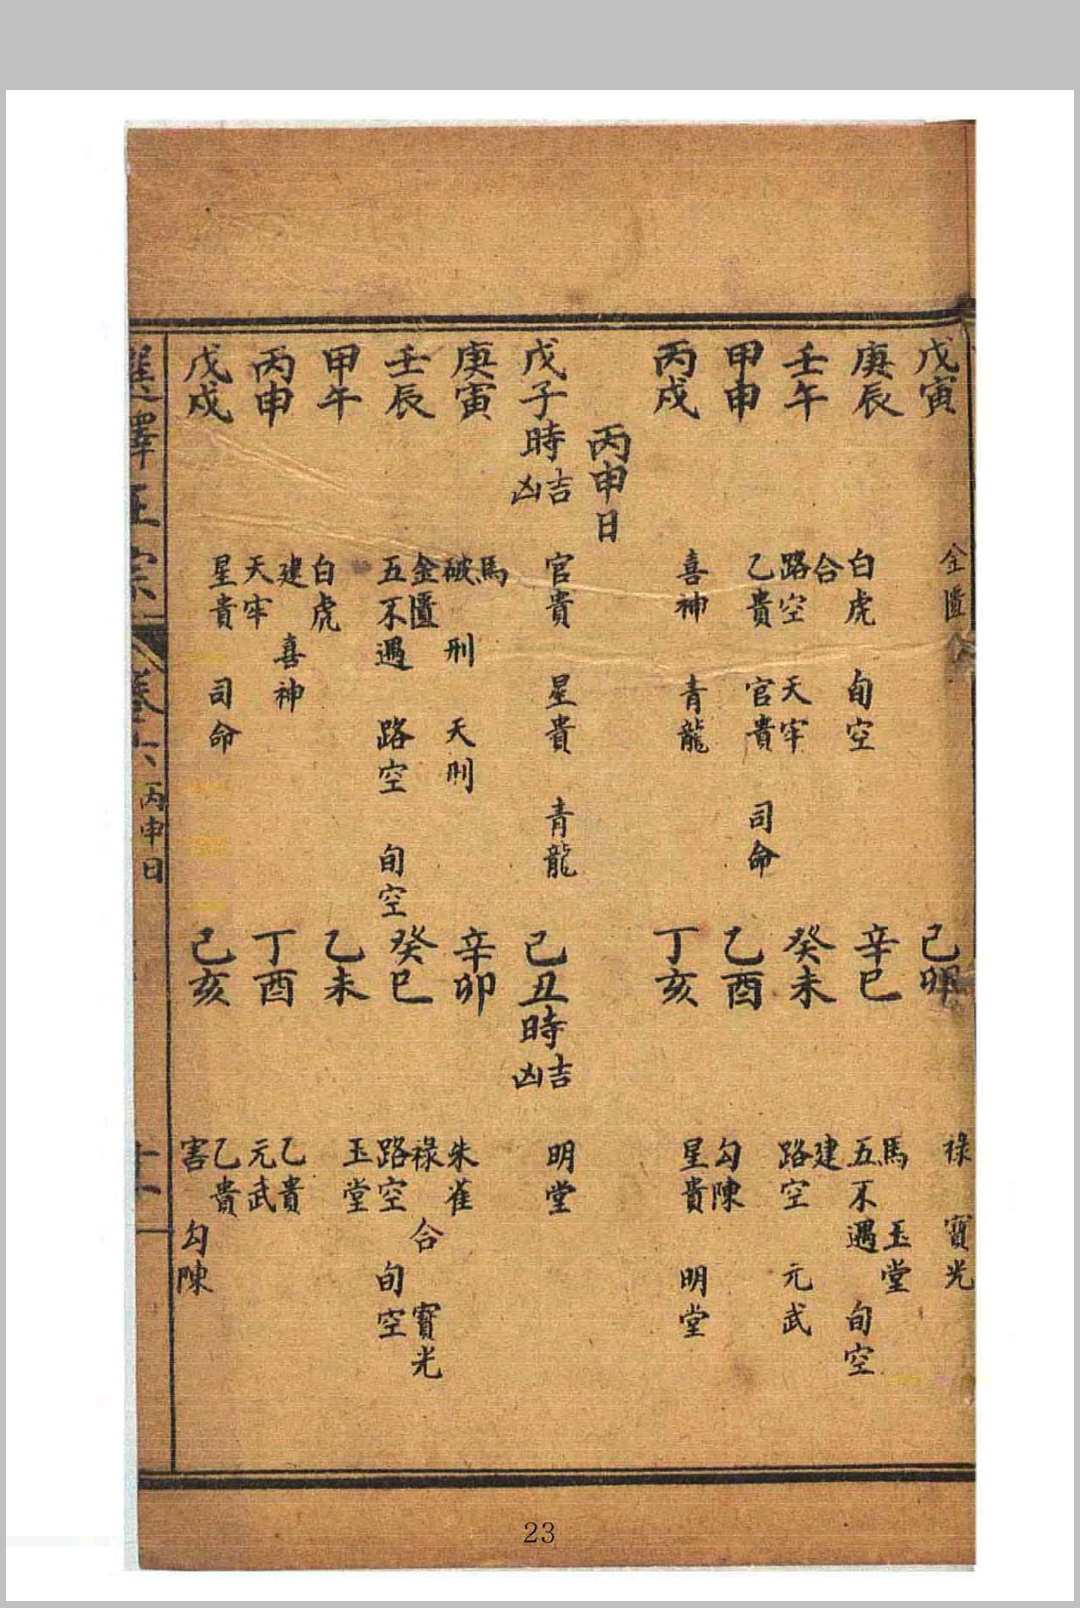 戊寅 金匱
己卯 祿 寶光
庚辰 白虎 旬空 合
辛巳 馬 玉堂 五不遇 旬空
壬午 路空 天牢
癸未 建 路空 元武
甲申 乙貴 官貴 司命
乙酉 勾陳
丙戌 喜神 青龍
丁亥 星貴 明堂
丙申日
戊子時吉凶 官貴 星貴 青龍
己丑時吉凶 明堂
庚寅 馬 破 刑 天刑
辛卯 朱雀
壬辰 金匱 五不遇 路空 旬空
癸巳 祿 合 寶光 路空 旬空
甲午 白虎
乙未 玉堂
丙申 建 喜神 天牢
丁酉 乙貴 元武
戊戌 星貴 司命
己亥 乙貴 害 勾陳
選擇正宗 卷六 丙申日 十一
23